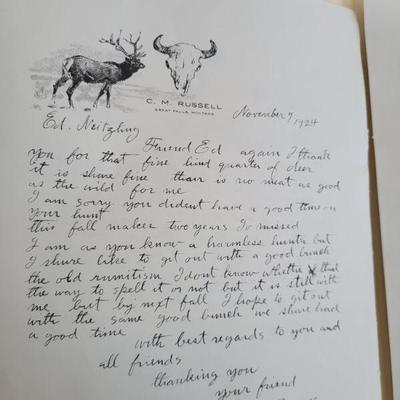 C. M. RUSSELL
GREAT FALLS, MONTANA
November 7
1924
Ed. Neitzling
Friend Ed again I thank
you for that fine hind quarter of deer
it is shure fine thair is no meat as good
as the wild for me
I am sorry you dident have a good time on
your hunt
this fall makes two years Iv missed
I am as you know a harmless hunter but
I shure like to get out with a good bunch
the old rumitism I dont know whether that
the way to spell it or not but it is still with
me but by next fall I hope to get out
with the same good bunch we shure had
a good time
with best regards to you and
all friends
thanking you
your friend